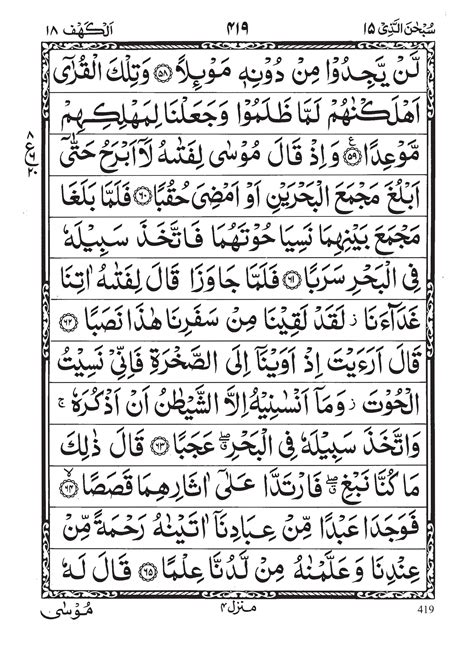 سُبْحٰنَ الَّذِیْ ۱۵ ۴۱۹ اَلْكَهْف ۱۸
لَّنْ یَّجِدُوْا مِنْ دُوْنِهٖ مَوْىِٕلًا ۝۵۸ وَتِلْكَ الْقُرٰۤی
اَهْلَكْنٰهُمْ لَمَّا ظَلَمُوْا وَجَعَلْنَا لِمَهْلِكِهِمْ
مَّوْعِدًا ۝۵۹ وَاِذْ قَالَ مُوْسٰی لِفَتٰىهُ لَاۤ اَبْرَحُ حَتّٰۤی
۸ ع ۶ ۲۰
اَبْلُغَ مَجْمَعَ الْبَحْرَیْنِ اَوْ اَمْضِیَ حُقُبًا ۝۶۰ فَلَمَّا بَلَغَا
مَجْمَعَ بَیْنِهِمَا نَسِیَا حُوْتَهُمَا فَاتَّخَذَ سَبِیْلَهٗ
فِی الْبَحْرِ سَرَبًا ۝۶۱ فَلَمَّا جَاوَزَا قَالَ لِفَتٰىهُ اٰتِنَا
غَدَآءَنَا ز لَقَدْ لَقِیْنَا مِنْ سَفَرِنَا هٰذَا نَصَبًا ۝۶۲
قَالَ اَرَءَیْتَ اِذْ اَوَیْنَاۤ اِلَی الصَّخْرَةِ فَاِنِّیْ نَسِیْتُ
الْحُوْتَ ز وَمَاۤ اَنْسٰىنِیْهُ اِلَّا الشَّیْطٰنُ اَنْ اَذْكُرَهٗ ۚ
وَاتَّخَذَ سَبِیْلَهٗ فِی الْبَحْرِ ۖۗ عَجَبًا ۝۶۳ قَالَ ذٰلِكَ
مَا كُنَّا نَبْغِ ۖۗ فَارْتَدَّا عَلٰۤی اٰثَارِهِمَا قَصَصًا ۝۶۴
فَوَجَدَا عَبْدًا مِّنْ عِبَادِنَاۤ اٰتَیْنٰهُ رَحْمَةً مِّنْ
عِنْدِنَا وَعَلَّمْنٰهُ مِنْ لَّدُنَّا عِلْمًا ۝۶۵ قَالَ لَهٗ
مُوْسٰی منزل ۴ 419